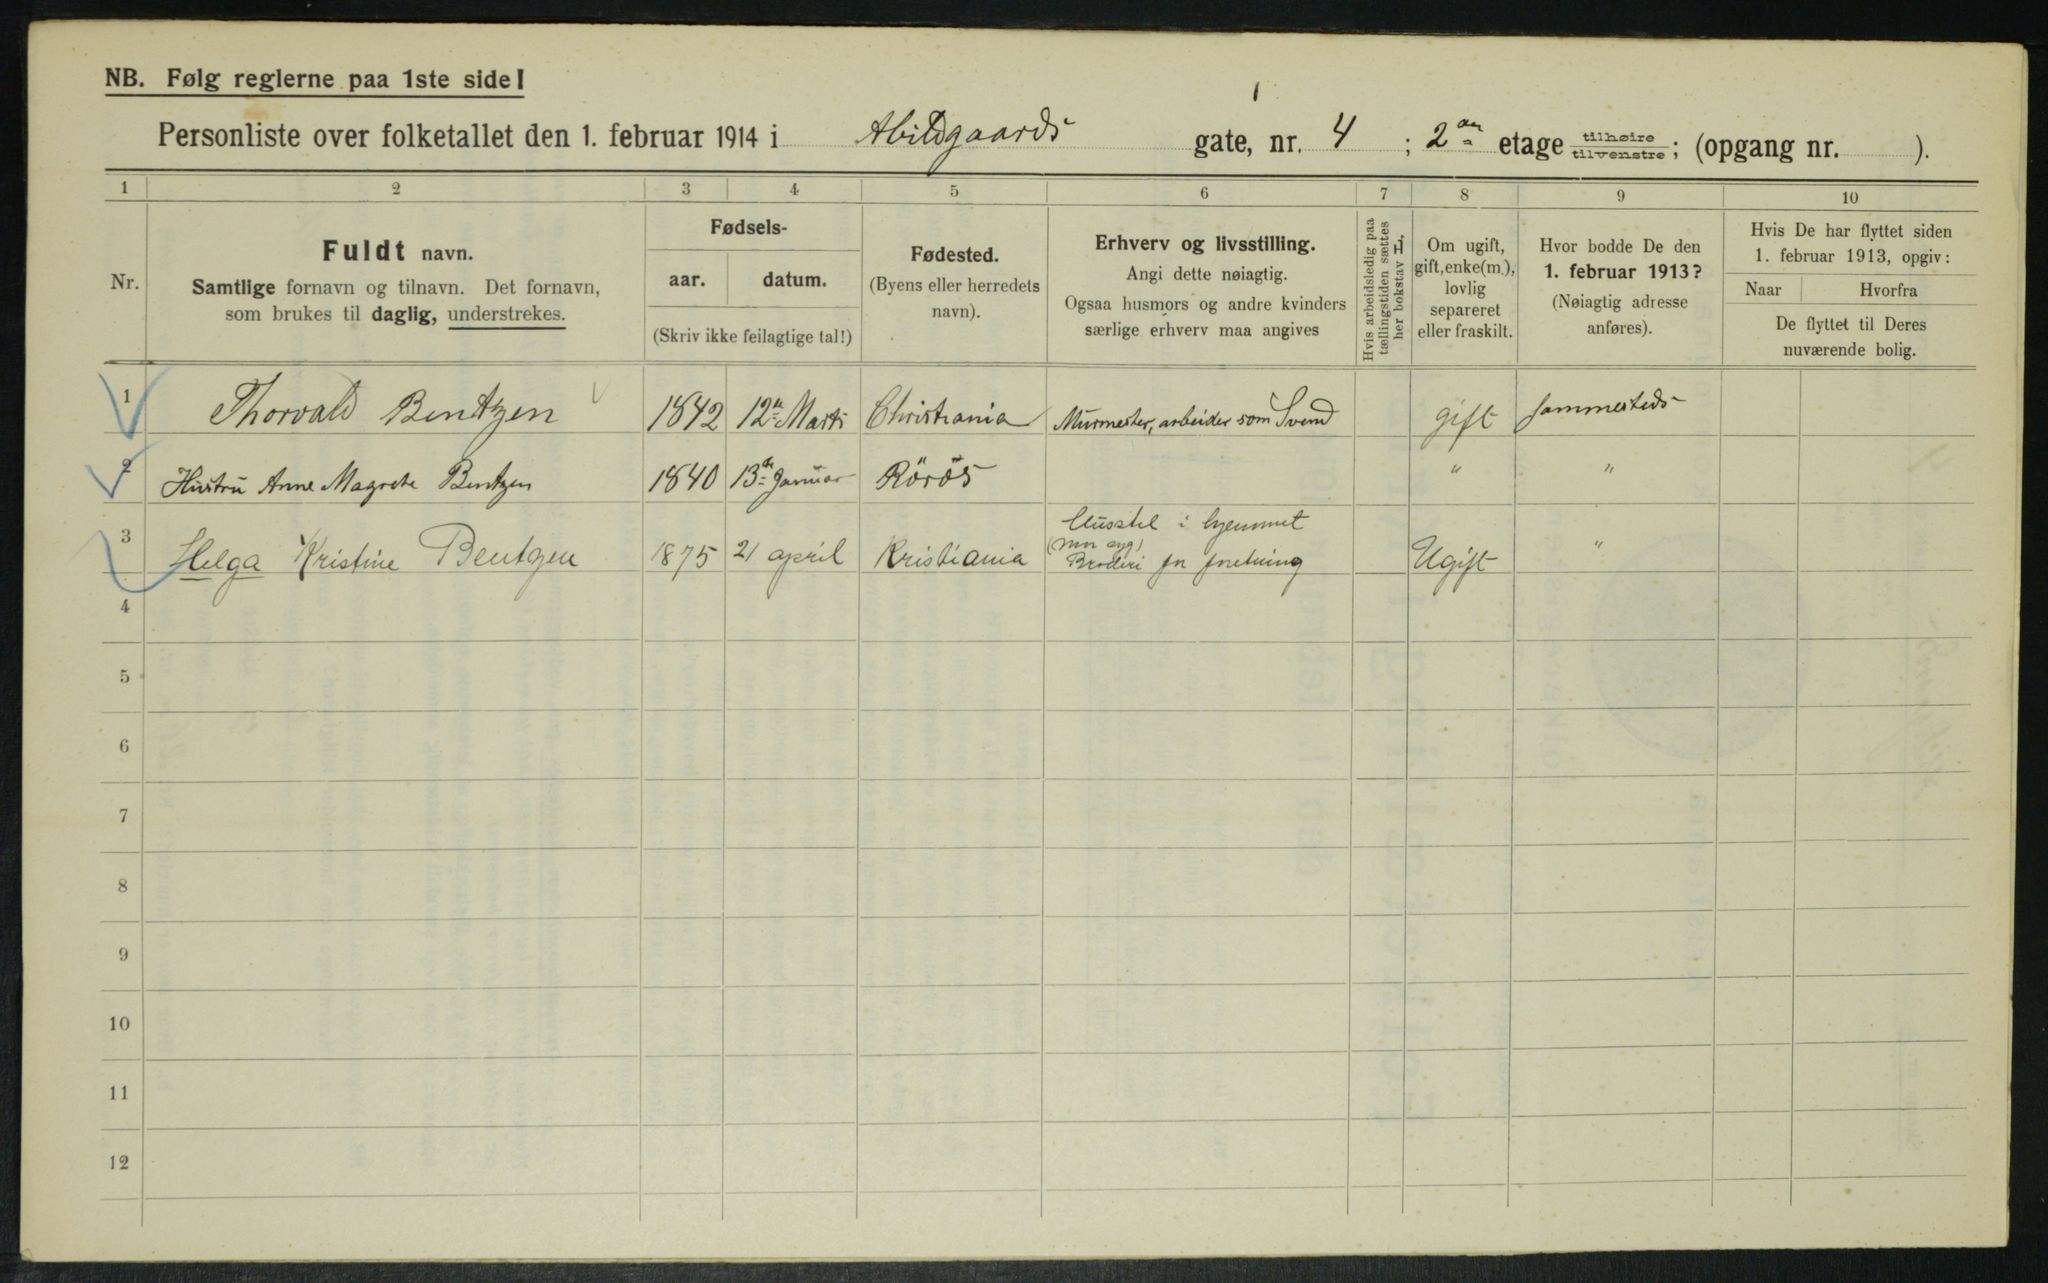 NB. Følg reglerne paa 1ste side!
Personliste over folketallet den 1. februar 1914 i Abildgaards gate, nr. 4 ; 2den etage tilhøire tilvenstre; (opgang nr. ).
1 2 3 4 5 6 7 8 9 10
Nr.
Fuldt navn.
Samtlige fornavn og tilnavn. Det fornavn,
som brukes til daglig, understrekes.
Fødsels-
aar. datum.
(Skriv ikke feilagtige tal!)
Fødested.
(Byens eller herredets
navn).
Erhverv og livsstilling.
Angi dette nøiagtig.
Ogsaa husmors og andre kvinders
særlige erhverv maa angives
Hvis arbeidsledig paa
tællingstiden sættes
her bokstav L,
Om ugift,
gift, enke(m.),
lovlig
separeret
eller fraskilt.
Hvor bodde De den
1. februar 1913?
(Nøiagtig adresse
anføres).
Hvis De har flyttet siden
1. februar 1913, opgiv:
Naar Hvorfra
De flyttet til Deres
nuværende bolig.
1 Thorvald Bentzen 1842 12te Marts Christiania Murmester, arbeider som Svend gift sammesteds
2 Hustru Anne Magrete Bentzen 1840 13de Januar Röros " "
3 Helga Kristine Bentzen 1875 21 april Kristiania Husstel i hjemmet
(mor syg)
Broderi for forretning Ugift "
4
5
6
7
8
9
10
11
12